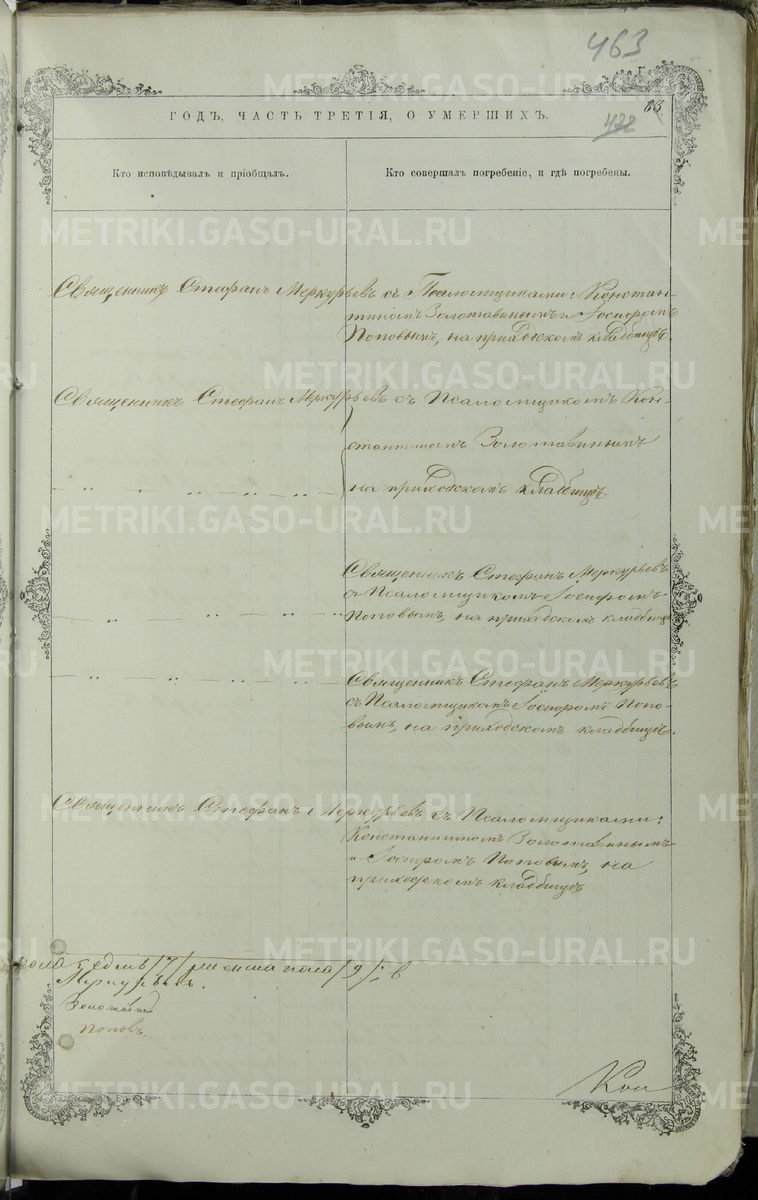 463
83
472
ГОДЪ, ЧАСТЬ ТРЕТІЯ, О УМЕРШИХЪ.
Кто исповѣдывалъ и пріобщалъ.
Кто совершалъ погребеніе, и гдѣ погребены.
Священникъ Стефанъ Меркурьевъ съ Псаломщиками: Констан-
тиномъ Золотавинымъ и Іосифомъ
Поповымъ, на приходскомъ кладбищѣ.
Священникъ Стефанъ Меркурьевъ съ Псаломщикомъ Кон-
стантиномъ Золотавинымъ
на приходскомъ кладбищѣ
Священникъ Стефанъ Меркурьевъ
съ Псаломщикомъ Іосифомъ
Поповымъ, на приходскомъ кладбищѣ
Священникъ Стефанъ Меркурьевъ
съ Псаломщикомъ Іосифомъ Попо-
вымъ, на приходскомъ кладбищѣ.
Священникъ Стефанъ Меркурьевъ съ Псаломщиками:
Константиномъ Золотавинымъ
и Іосифомъ Поповымъ, на
приходскомъ кладбищѣ
пола седмь /7/ женска пола /9/
Меркурьевъ.
Золотавинъ
Поповъ.
METRIKI.GASO-URAL.RU